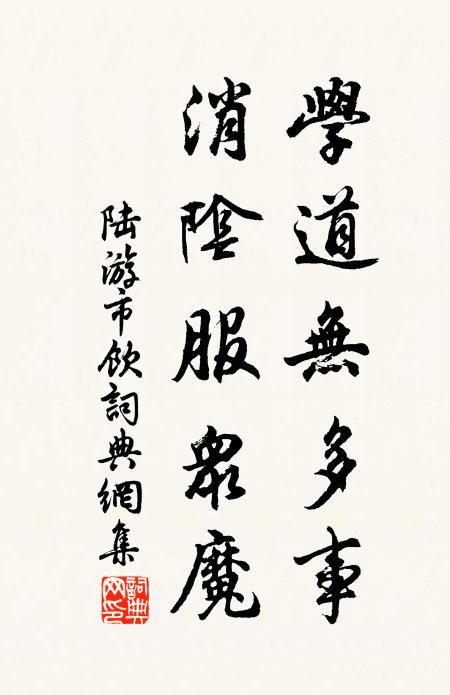 學道無多事
消陰服眾魔
陸游市飲詞典網集
詞典
网印